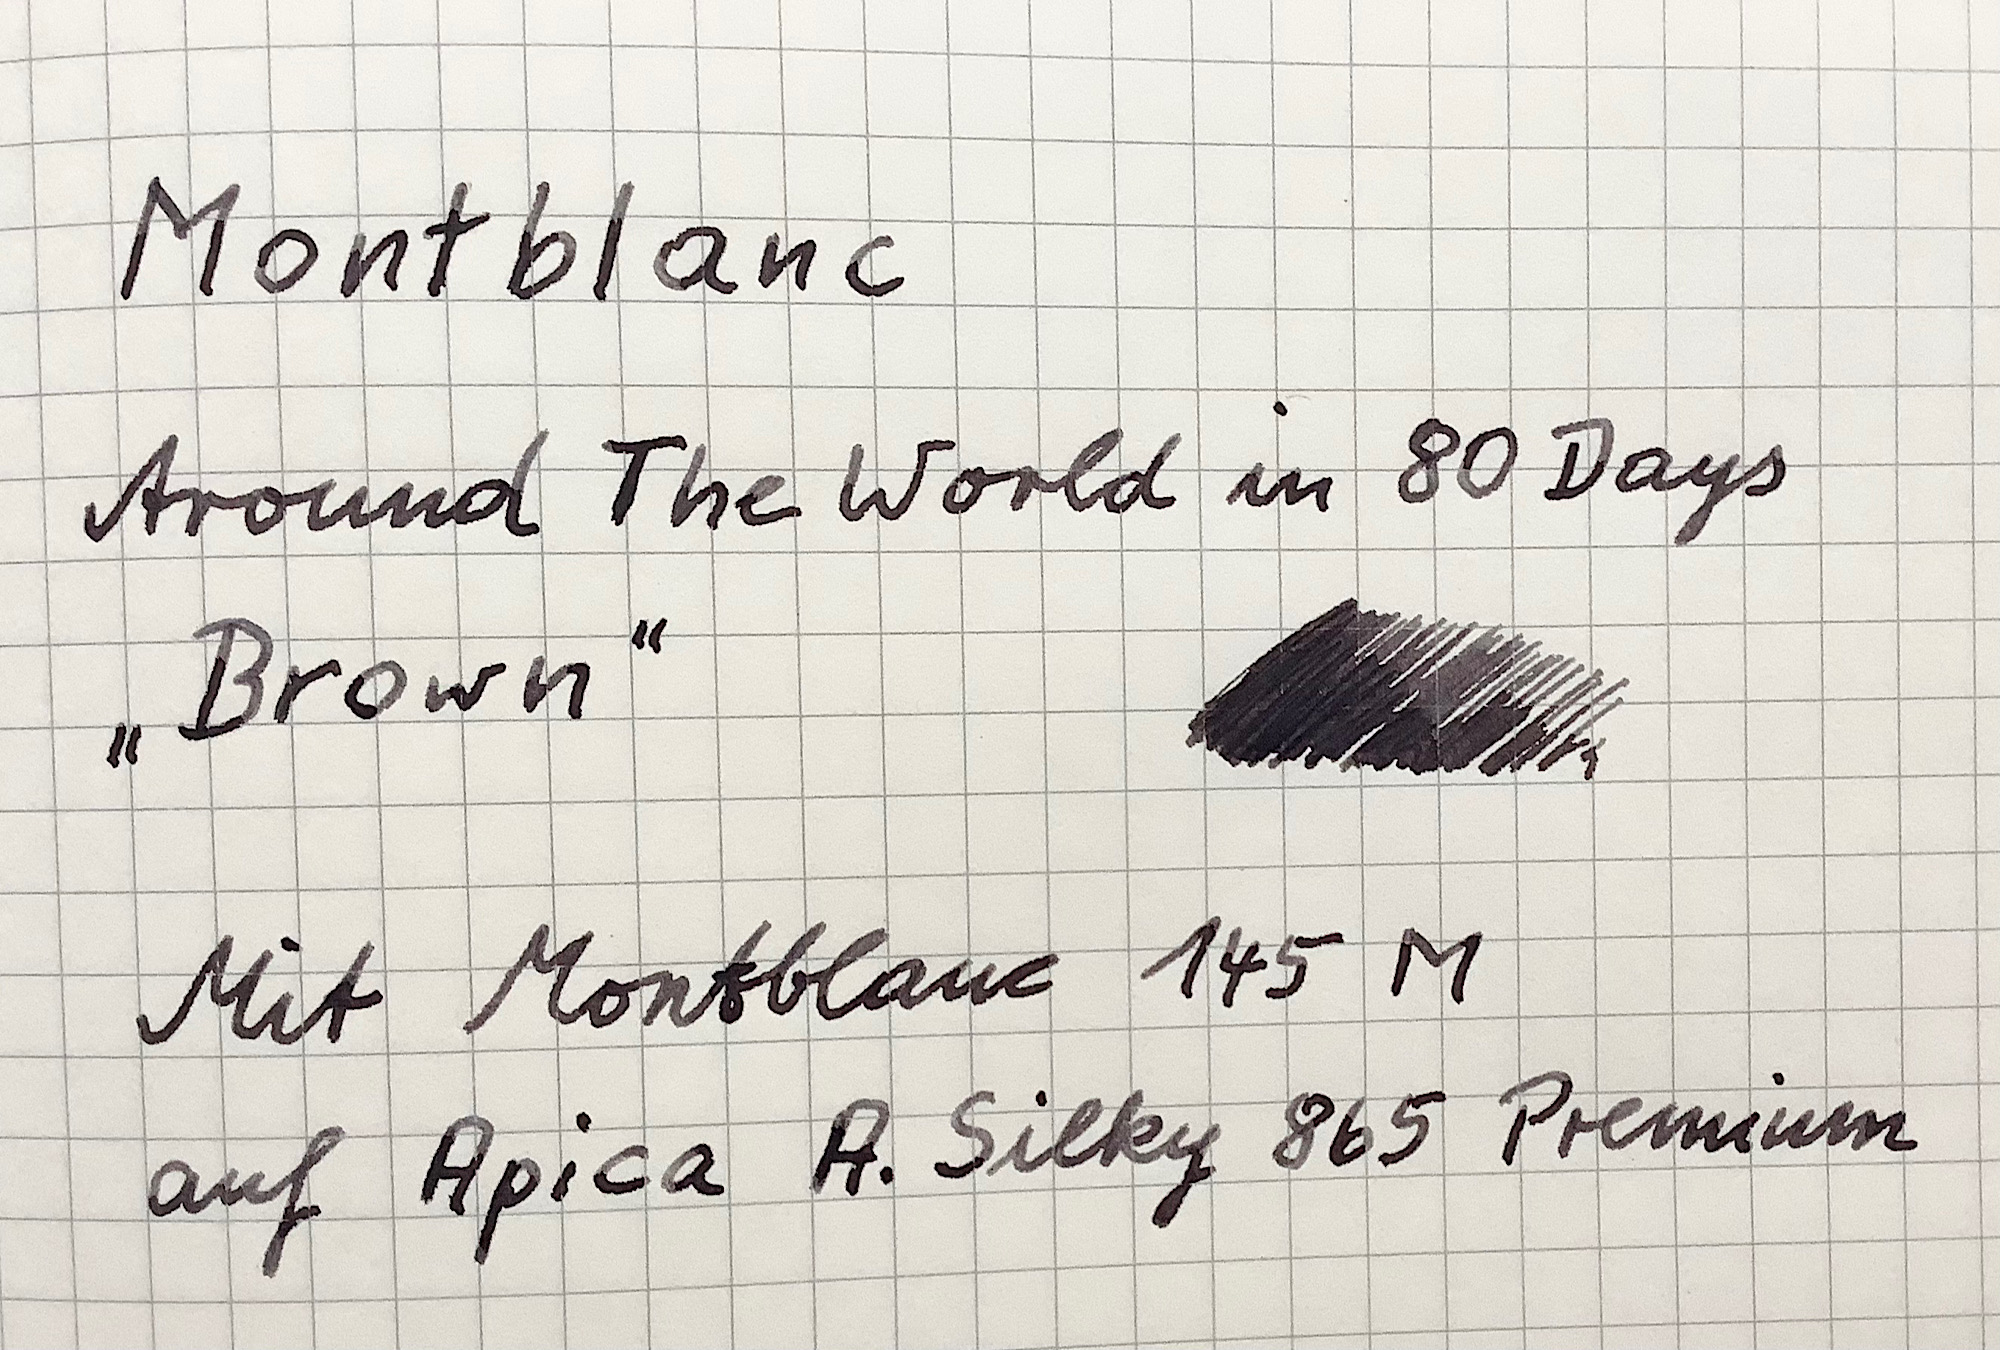 Montblanc
Around The World in 80 Days
„Brown“
Mit Montblanc 145 M
auf Apica A. Silky 865 Premium